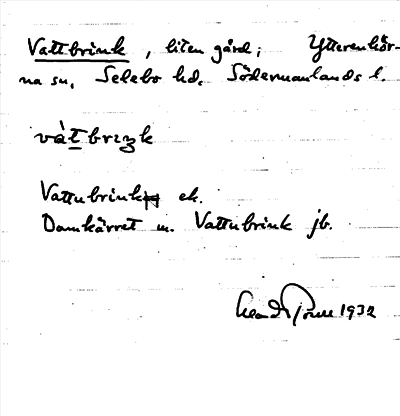 Vattbrink, liten gård; Ytterenhör-
na sn, Selebo hd. Södermanlands l.
vàt briŋk
Vattubrink ek.
Damkärret m. Vattubrink jb.
1932